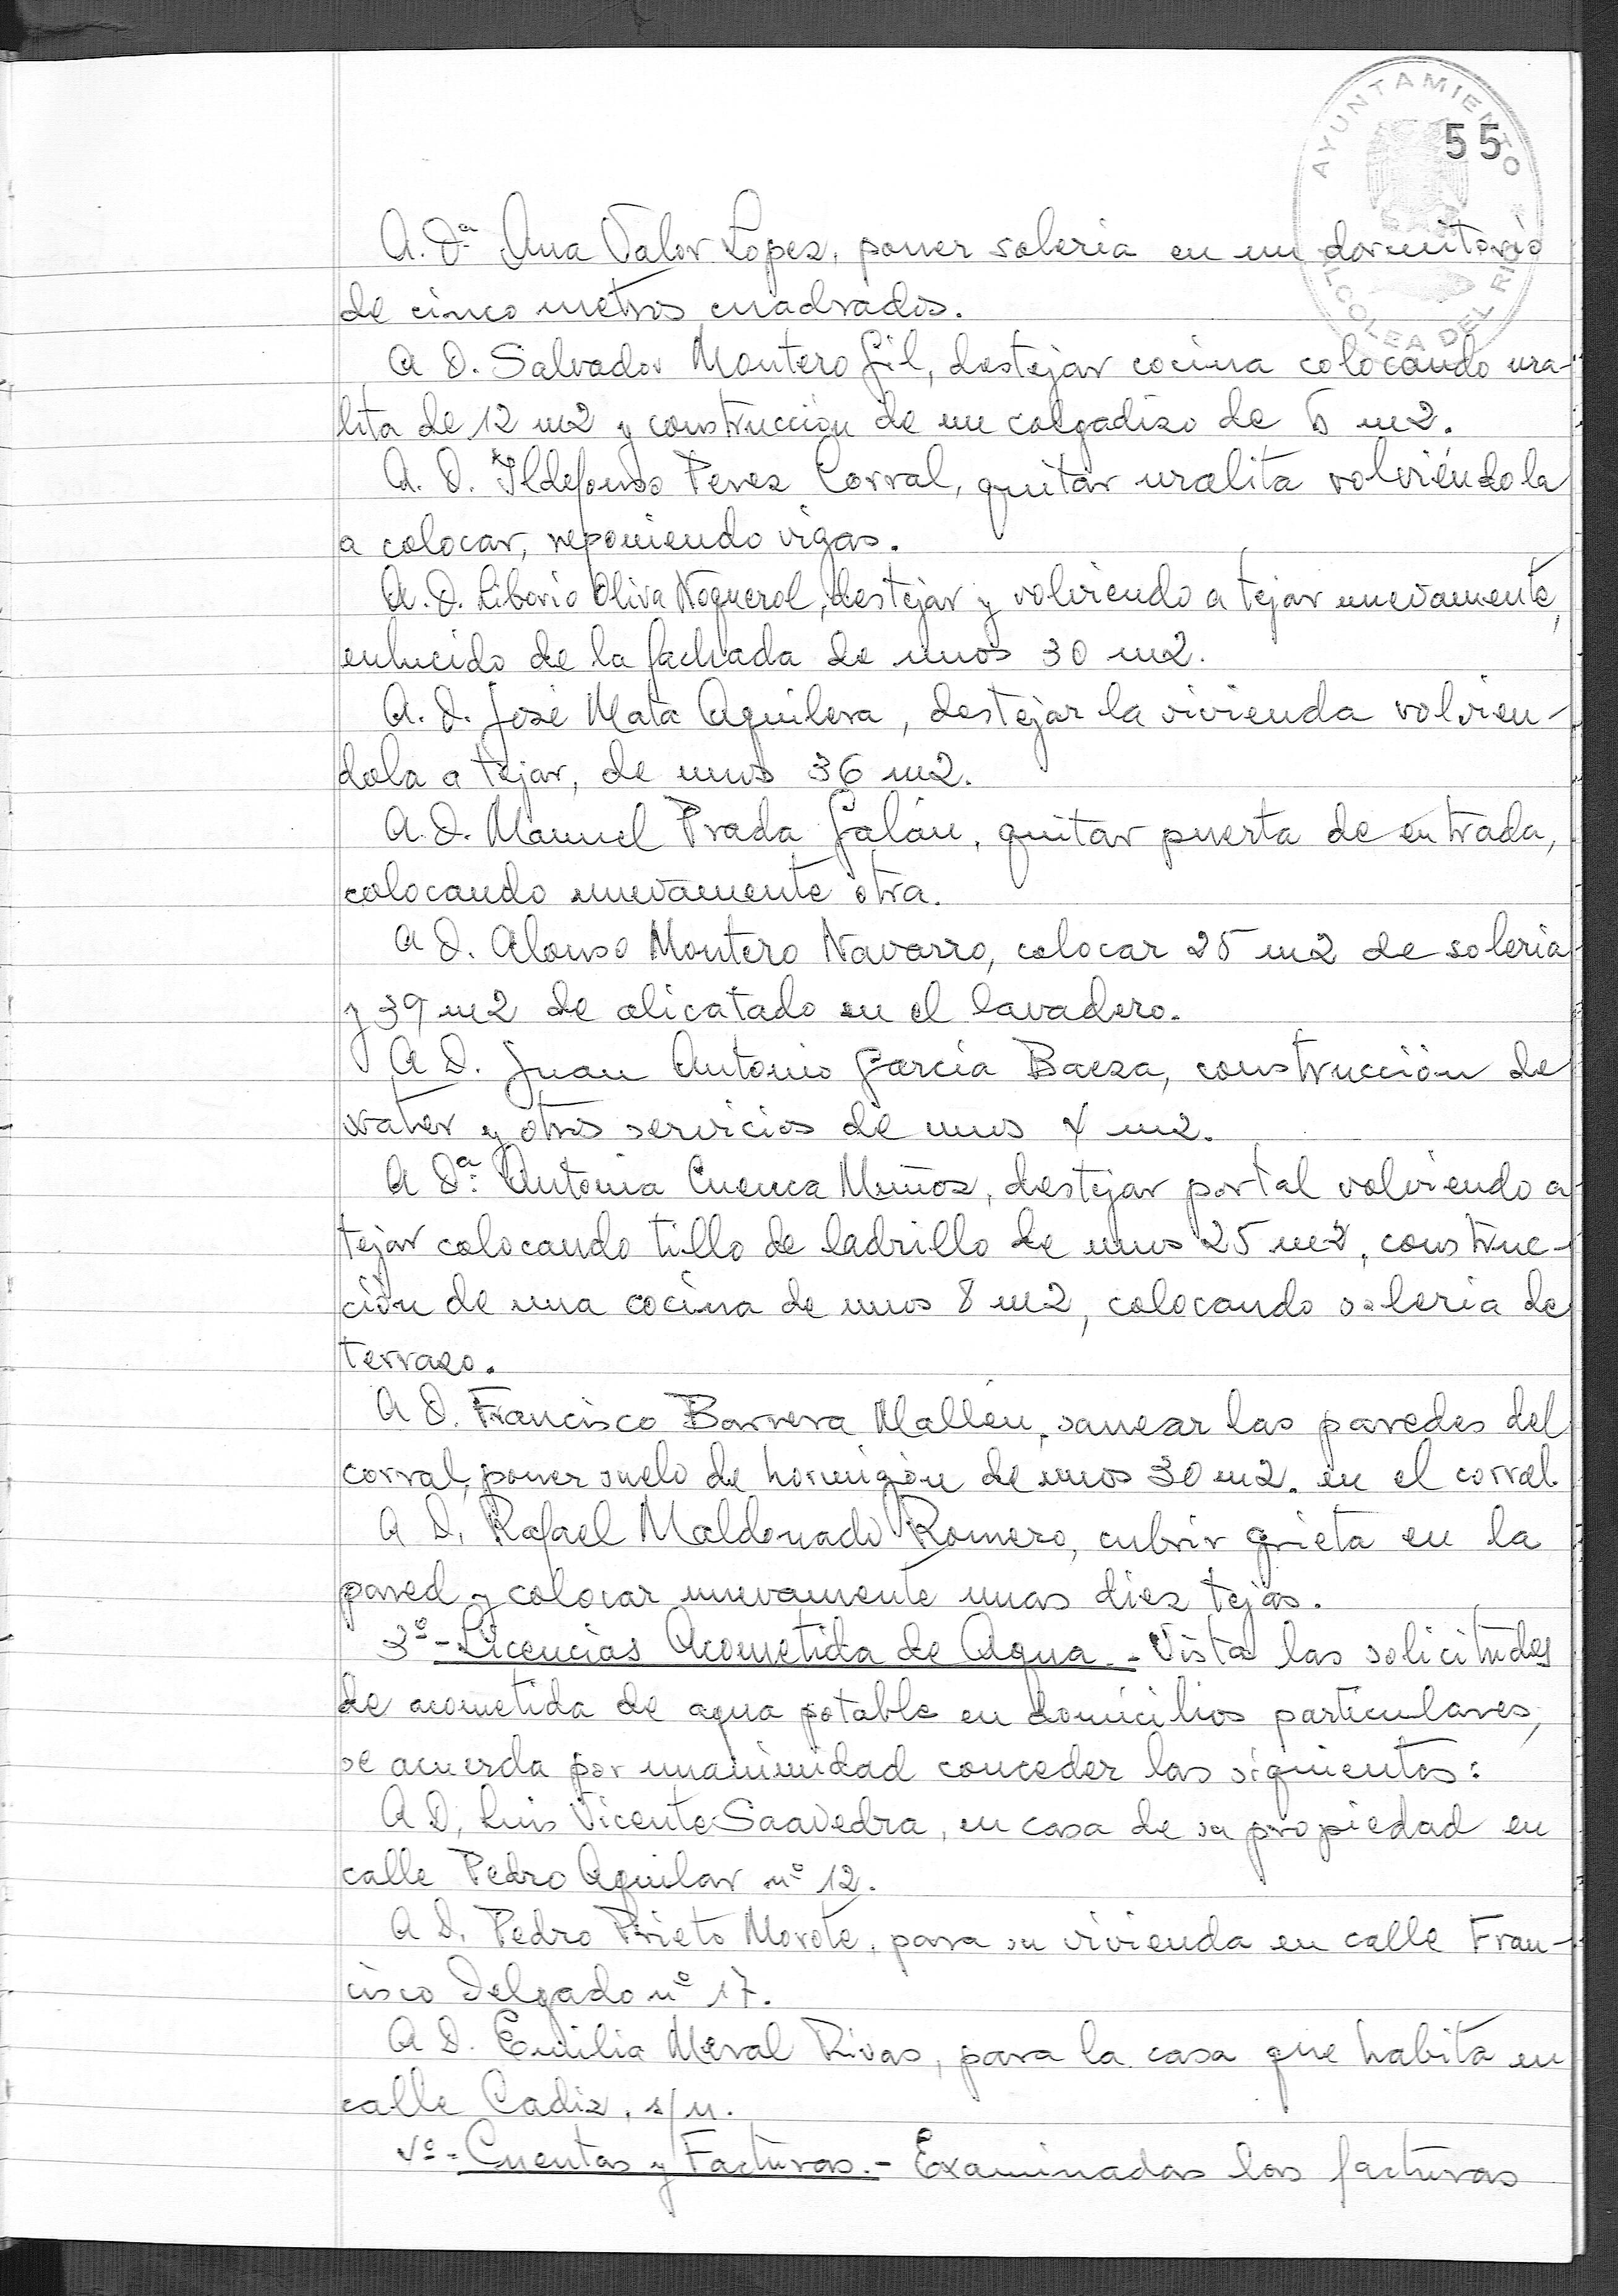 AYUNTAMIENTO
ALCOLEA DEL RIO
55
A. Dª Ana Valor Lopez, poner soleria en un dormitorio
de cinco metros cuadrados.
A D. Salvador Montero Gil, destejar cocina colocando ura-
lita de 12 m2 y construcción de un colgadizo de 6 m2.
A. D. Ildefonso Perez Corral, quitar uralita volviéndola
a colocar, reponiendo vigas.
A. D. Liborio Oliva Noguerol, destejar y volviendo a tejar nuevamente,
enlucido de la fachada de unos 30 m2.
A. D. José Mata Aguilera, destejar la vivienda volvien-
dola a tejar, de unos 36 m2.
A. D. Manuel Prada Galán, quitar puerta de entrada,
colocando nuevamente otra.
A D. Alonso Montero Navarro, colocar 25 m2 de soleria
y 39 m2 de alicatado en el lavadero.
A D. Juan Antonio Garcia Baeza, construcción de
water y otros servicios de unos 4 m2.
A Dª. Antonia Cuenca Muñoz, destejar portal volviendo a
tejar colocando tillo de ladrillo de unos 25 m2, construc-
ción de una cocina de unos 8 m2, colocando soleria de
terrazo.
A D. Francisco Barrera Mallen, sanear las paredes del
corral, poner suelo de hormigón de unos 30 m2. en el corral.
A D. Rafael Maldonado Romero, cubrir grieta en la
pared y colocar nuevamente unas diez tejas.
3º- Licencias Acometida de Agua.- Vista las solicitudes
de acometida de agua potable en domicilios particulares,
se acuerda por unanimidad conceder las siguientes:
A D. Luis Vicente Saavedra, en casa de su propiedad en
calle Pedro Aguilar nº 12.
A D. Pedro Prieto Morote, para su vivienda en calle Fran-
cisco Delgado nº 17.
A D. Emilia Meral Rivas, para la casa que habita en
calle Cadiz, s/n.
4º- Cuentas y Facturas.- Examinadas las facturas